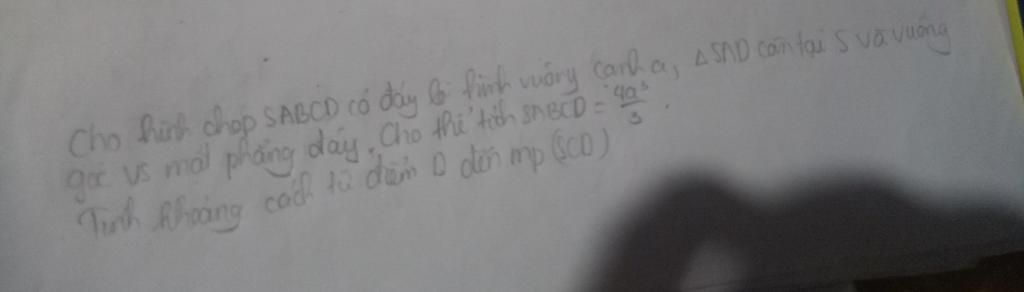 Cho hình chóp SABCD có đáy là hình vuông cạnh a, Δ SAD cân tại S và vuông
góc vs mặt phẳng đáy. Cho thể tích SABCD = 4a³/3.
Tính khoảng cách từ điểm D đến mp (SCD)